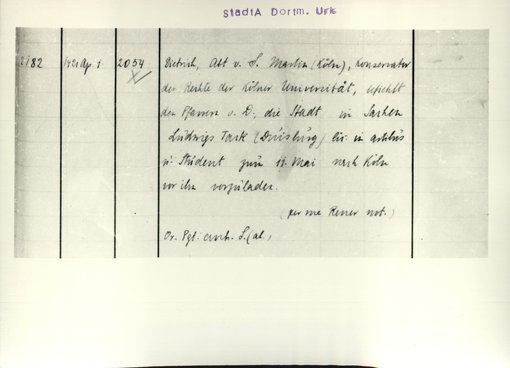 StadtA Dortm. Urk
2182 1421 Ap. 1. 2054 Dietrich, Abt v. S. Martin (Köln), Konservator
der Rechte der Kölner Universität, befiehlt
den Pfarrern v. D., die Stadt in Sachen
Ludwigs Tack (Duisburg) lic. in artibus
u. Student zum 11. Mai nach Köln
vor ihn vorzuladen.
(per me Rener not.)
Or. Pgt. anh. S.